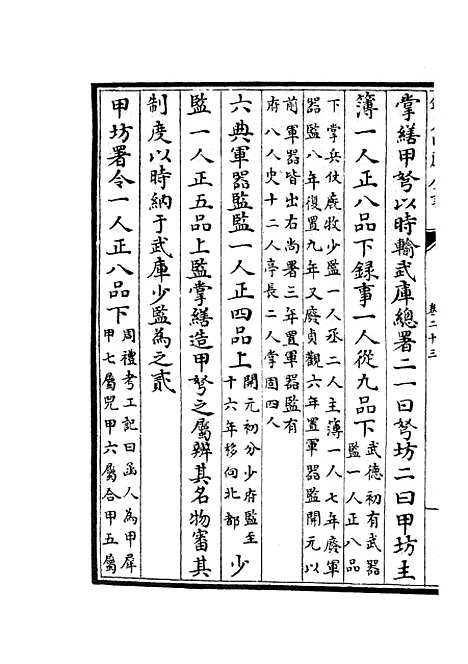 卷二十三
掌繕甲弩以時輸武庫總署二一曰弩坊二曰甲坊主
簿一人正八品下録事一人從九品下
武德初有武器
監一人正八品
下掌兵仗廐牧少監一人丞二人主簿一人七年廢軍
器監八年復置九年又廢貞觀六年置軍器監開元以
前軍器皆出右尚署三年置軍器監有
府八人史十二人亭長二人掌固四人
六典軍器監監一人正四品上
開元初分少府監至
十六年移向北都
少
監一人正五品上監掌繕造甲弩之屬辨其名物審其
制度以時納于武庫少監為之貳
甲坊署令一人正八品下
周禮考工記曰函人為甲犀
甲七屬兕甲六屬合甲五屬